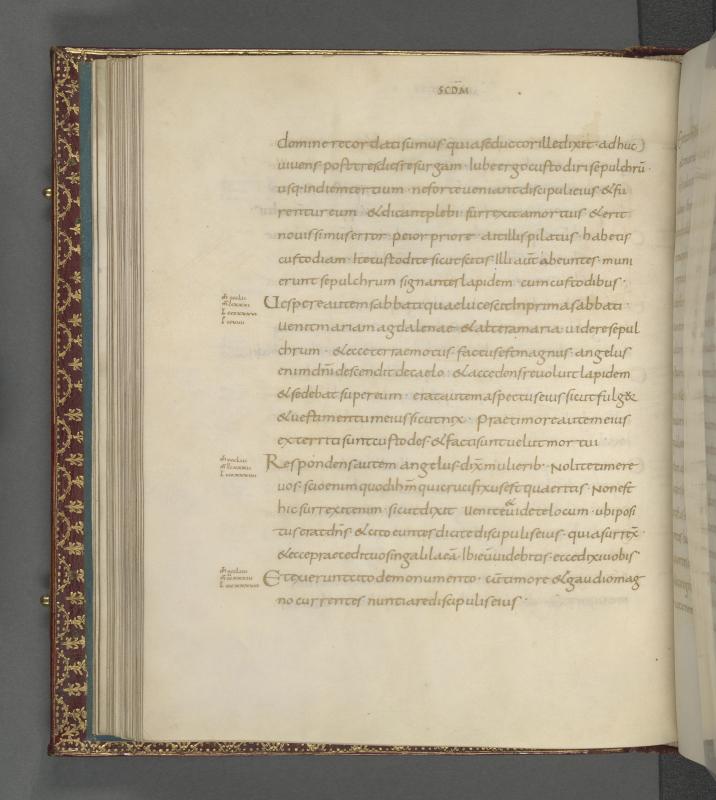 SCDM
domine recordati sumus quia seductor ille dixit · adhuc
vivens post tres dies resurgam · Iube ergo custodiri sepulchrū ·
usq · in diem tertium · ne forte veniant discipuli eius & fu
rentur eum · & dicant plebi · surrexit a mortuis · & erit
novissimus error peior priore · ait illis pilatus · habetis
custodiam · Ite custodite sicut scitis · Illi aut̄ abeuntes · muni
erunt sepulchrum signantes lapidem · cum custodibus ·
Vespere autem sabbati · quae lucescit In prima sabbati ·
venit maria magdalenae · & altera maria · videre sepul
chrum · & ecce terrae motus · factus est magnus · angelus
enim dn̄i descendit de caelo · & accedens revolvit lapidem
& sedebat super eum · erat autem aspectus eius sicut fulg&
& vestimentum eius sicut nix · Prae timore autem eius
exterriti sunt custodes · & facti sunt velut mortui ·
Respondens autem angelus · dix̄ mulierib · Nolite timere
vos · scio enim quod ih̄m qui crucifixus est quaeritis · Non est
hic surrexit enim · sicut dixit · venite & videte locum · ubi posi
tus erat dn̄s · & cito euntes dicite discipulis eius · quia surrex̄ ·
& ecce praecedit vos in galilaeā · Ibi eū videbitis · ecce dixi vobis
Et exierunt cito de monumento · cū timore & gaudio mag
no currentes nuntiare discipulis eius ·